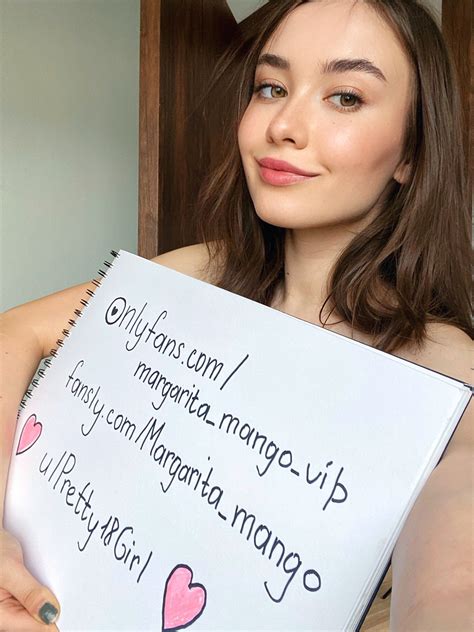 Onlyfans.com/
margarita_mango_vip
fansly.com/Margarita_mango
u/Pretty18Girl